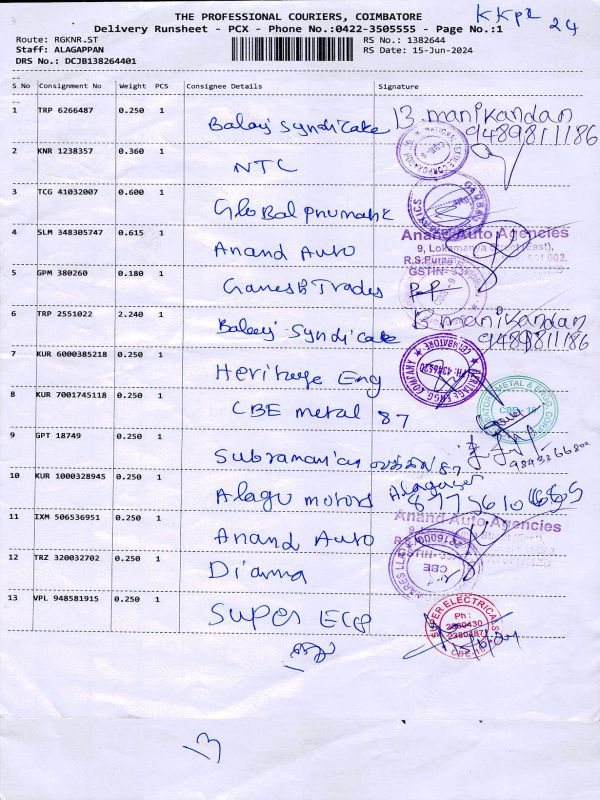 KKPR 24
THE PROFESSIONAL COURIERS, COIMBATORE
Delivery Runsheet - PCX - Phone No.:0422-3505555 - Page No.:1
Route: RGKNR.ST RS No.: 1382644
Staff: ALAGAPPAN RS Date: 15-Jun-2024
DRS No.: DCJB138264401
S No Consignment No Weight PCS Consignee Details Signature
1 TRP 6266487 0.250 1 Balaji Syndicate B manikandan
9489811186
2 KNR 1238357 0.360 1 NTC
3 TCG 41032007 0.600 1 Global pnumatic
4 SLM 348305747 0.615 1 Anand Auto Anand Auto Agencies
5 GPM 380260 0.180 1 Ganesh Trades
6 TRP 2551022 2.240 1 Balaji Syndicate B manikandan
9489811186
7 KUR 6000385218 0.250 1 Heritage Eng
8 KUR 7001745118 0.250 1 CBE metal 87
9 GPT 18749 0.250 1 Subramanian 87
10 KUR 1000328945 0.250 1 Alagu motors
11 IXM 506536951 0.250 1 Anand Auto Anand Auto Agencies
12 TRZ 320032702 0.250 1 Dianna CBE
13 VPL 948581915 0.250 1 Super SUPER ELECTRICALS
Ph :
2380430
2380487
13